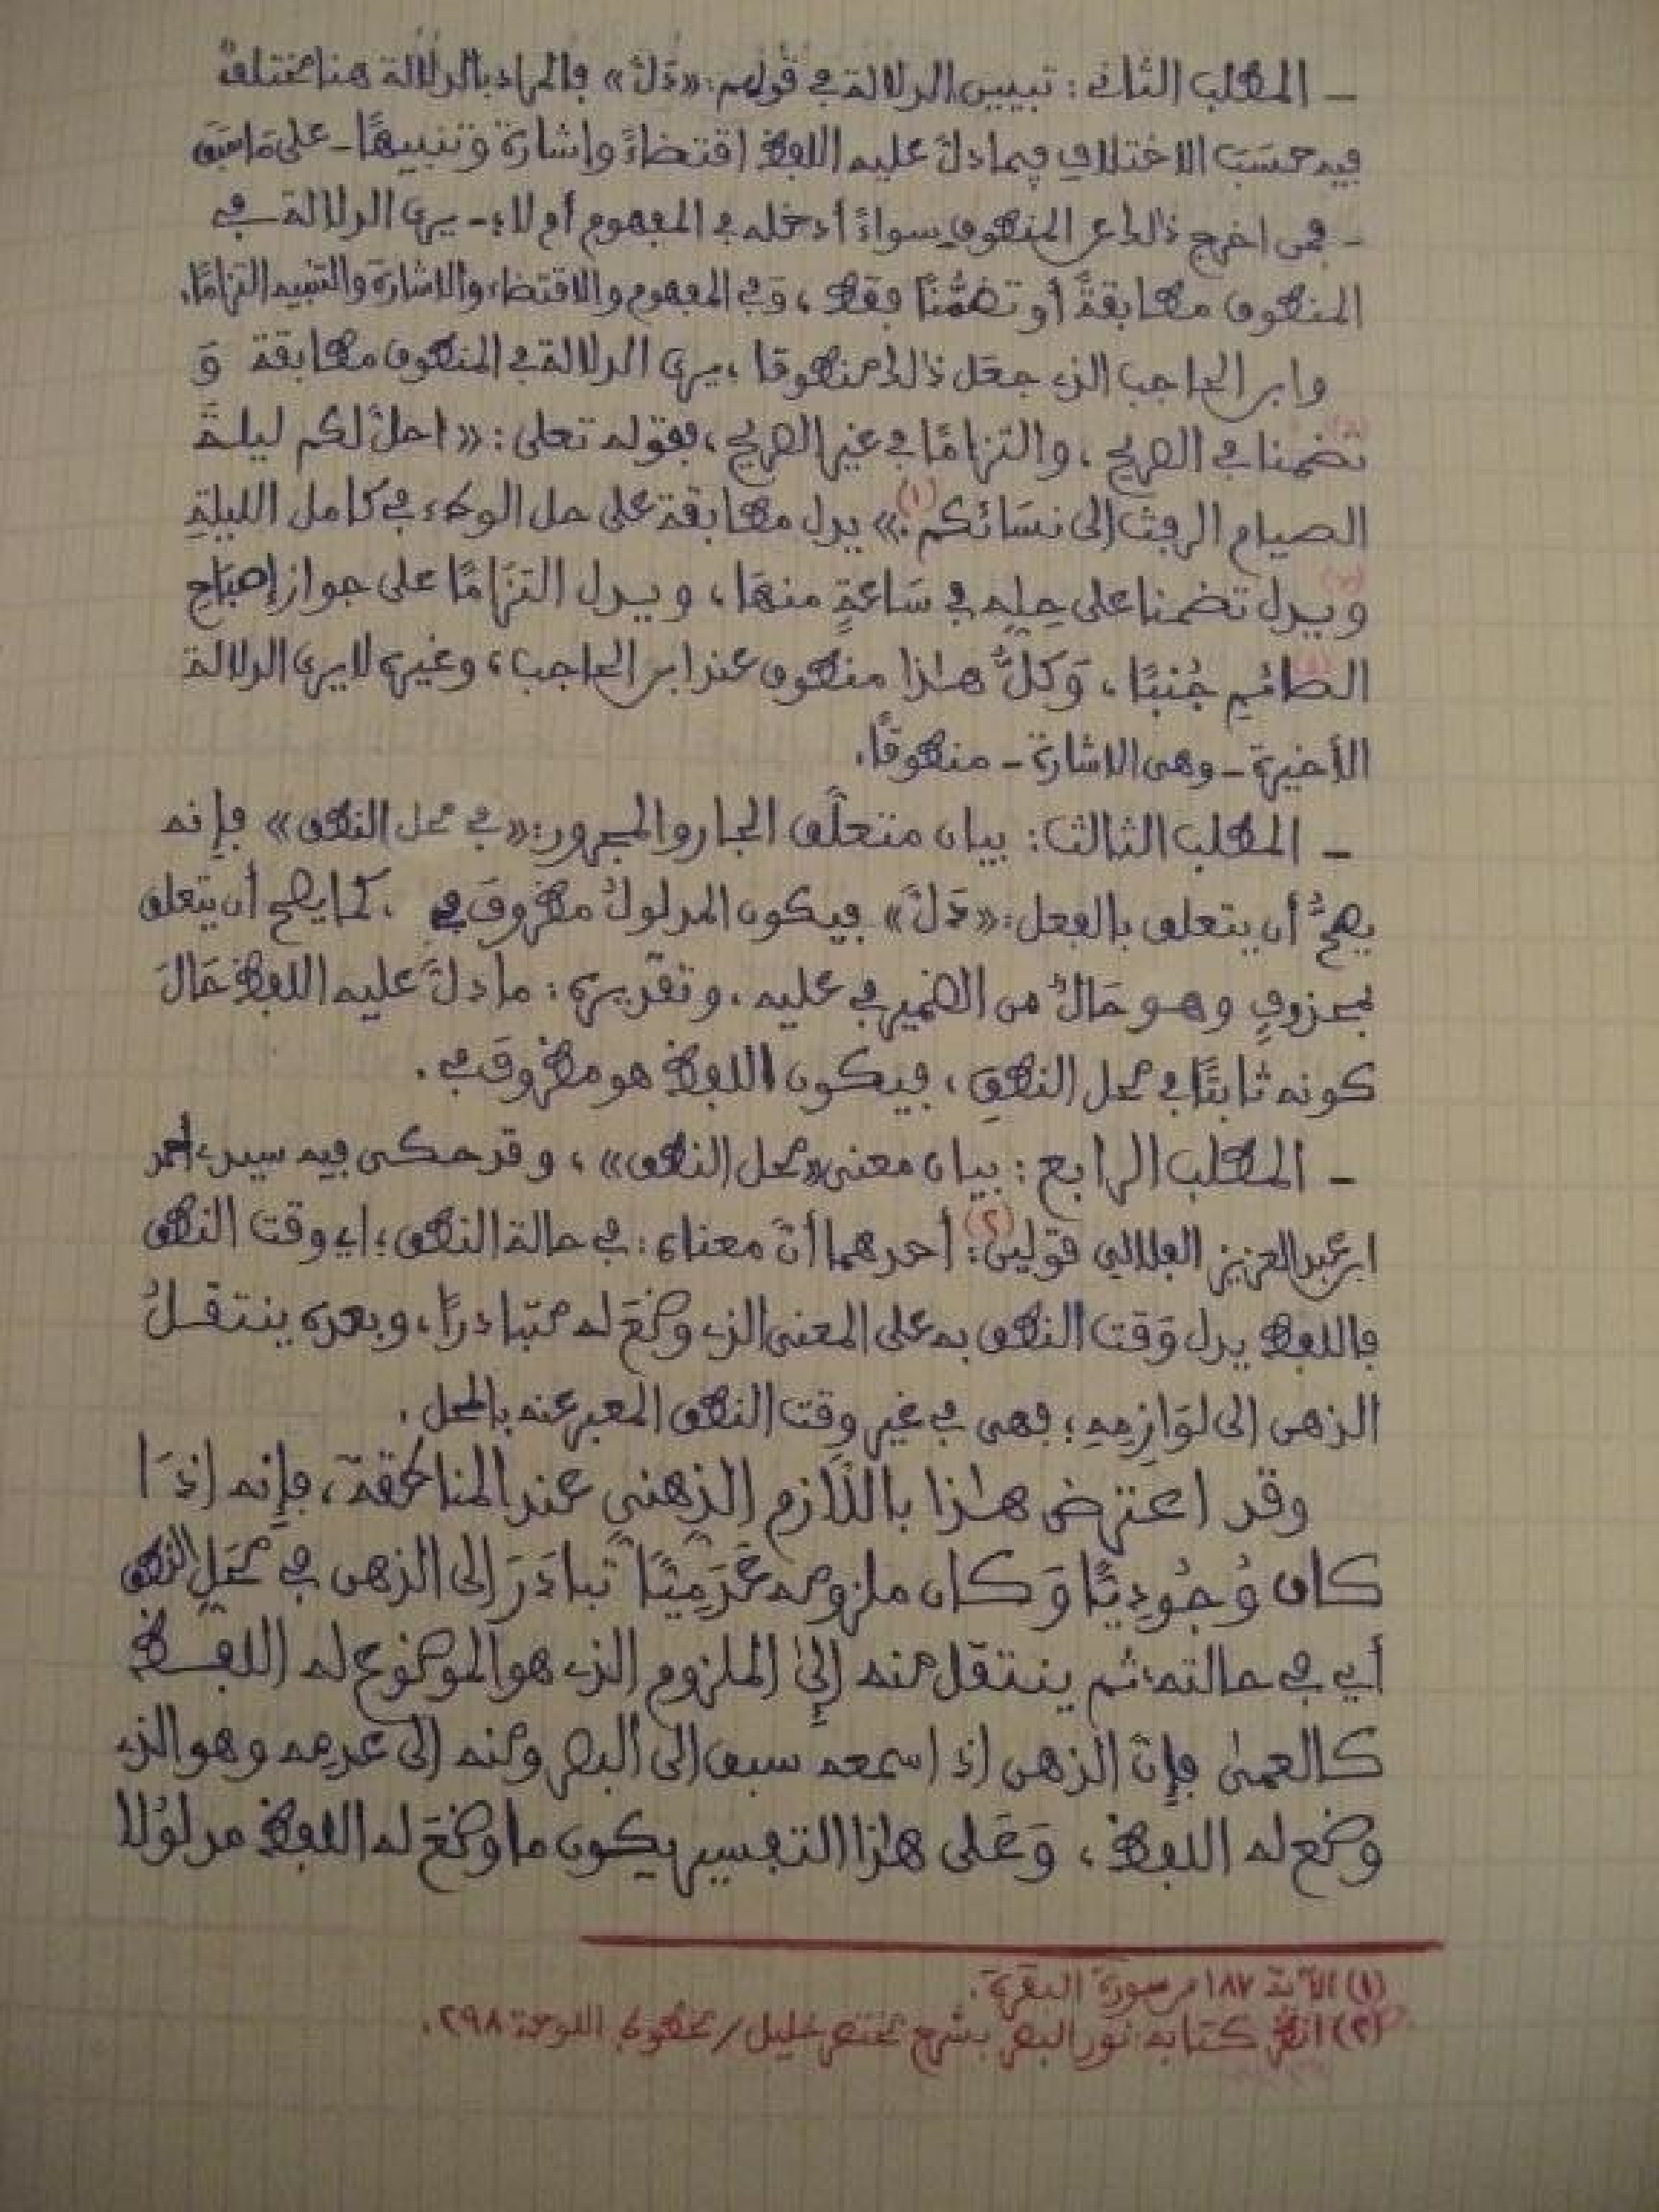 ـ المطلب الثاني : تبيين الدلالة في قولهم : «دَلَّ» فالمراد بالدلالة هنا مختلفٌ
فيه حسَبَ الاختلافِ فيما دلَّ عليه اللفظ اقتضاءً وإشارة وتنبيهًا ـ على مَا سَبَقَ
ـ فمن اخرج ذلك عن المنطوقِ سواءً أدخله في المفهوم أم لا ؛ ـ يرى الدلالة في
المنطوق مطابقةً أو تضمُّنًا فقط ، وَفي المفهوم والاقتضاء والاشارة والتنبيه التزامًا .
وابن الحاجب الذي جعَل ذلك منطوقا ، يرى الدلالة في المنطوق مطابقة وَ
تضمنا في الصريح ، والتزامًا في غير الصريح ، فقوله تعلى : «احلَّ لكم ليلةَ
الصيام الرفث إلى نسَائكم .» (١) يدل مطابقة على حل الوطء في كامل الليلةِ
ويدل تضمنا على حِلِه في سَاعةٍ منهَا ، ويدل التزَامًا على جواز إصبَاحِ
الصائمِ جُنبًا ، وَكلُّ هـٰذا منطوق عند ابن الحاجب ؛ وغيره لا يرى الدلالة
الأخيرة ـ وهي الاشارة ـ منطوقًا .
ـ المطلب الثالث : بيان متعلَّق الجار والمجرور : «في محل النطق» فإنه
يصحُّ أن يتعلق بالفعل : «دَلَّ» فيكون المدلولُ مظروفَ في ، كما يصح أن يتعلق
بمحذوفٍ وهـو حَالٌ من الضمير في عليه ، وتقديره : ما دلَّ عليه اللفظ حَالَ
كونه ثابتًا في محل النطقِ ، فيكون اللفظ هو مظروفَ في .
ـ المطلب الرابع : بيان معنى «محل النطق» ، وقد حكى فيه سيدي احمد
ابن عبد العزيز الهلالي قولين (٢) : أحدهما أنَّ معناه : في حالة النطق ؛ أي وقت النطق
فاللفظ يدل وَقت النطق به على المعنى الذي وضعَ له متبادرًا ، وبعده ينتقـلُ
الذهن الى لوَازِمِهِ ؛ فهي في غير وقت النطق المعبر عنه بالمحل .
وقد اعتَرض هـٰذا باللَّازم الذِهني عند المناطقة ، فإنه إذَا
كان وُجُودِيًّا وَكان ملزومه عَدَمِيًّا تبادَرَ إلى الذهن في محَلِ النطق
أي في حالته ، ثم ينتقل منه إلىٰ الملزوم الذي هو الموضوع له اللفـظ
كالعمىٰ فإنَّ الذهن إذ اسمعه سبق إلى البصر ومنه إلى عدمه وهو الذي
وضع له اللفظ ، وَعَلى هـٰذا التفسير يكون ما وضعَ له اللفظ مدلوُلا
(١) الآية ١٨٧ من سورة البقرة .
(٢) انظر كتابه : نور البصر بشرح مختصر خليل / مخطوط اللوحة ٢٩٨ .